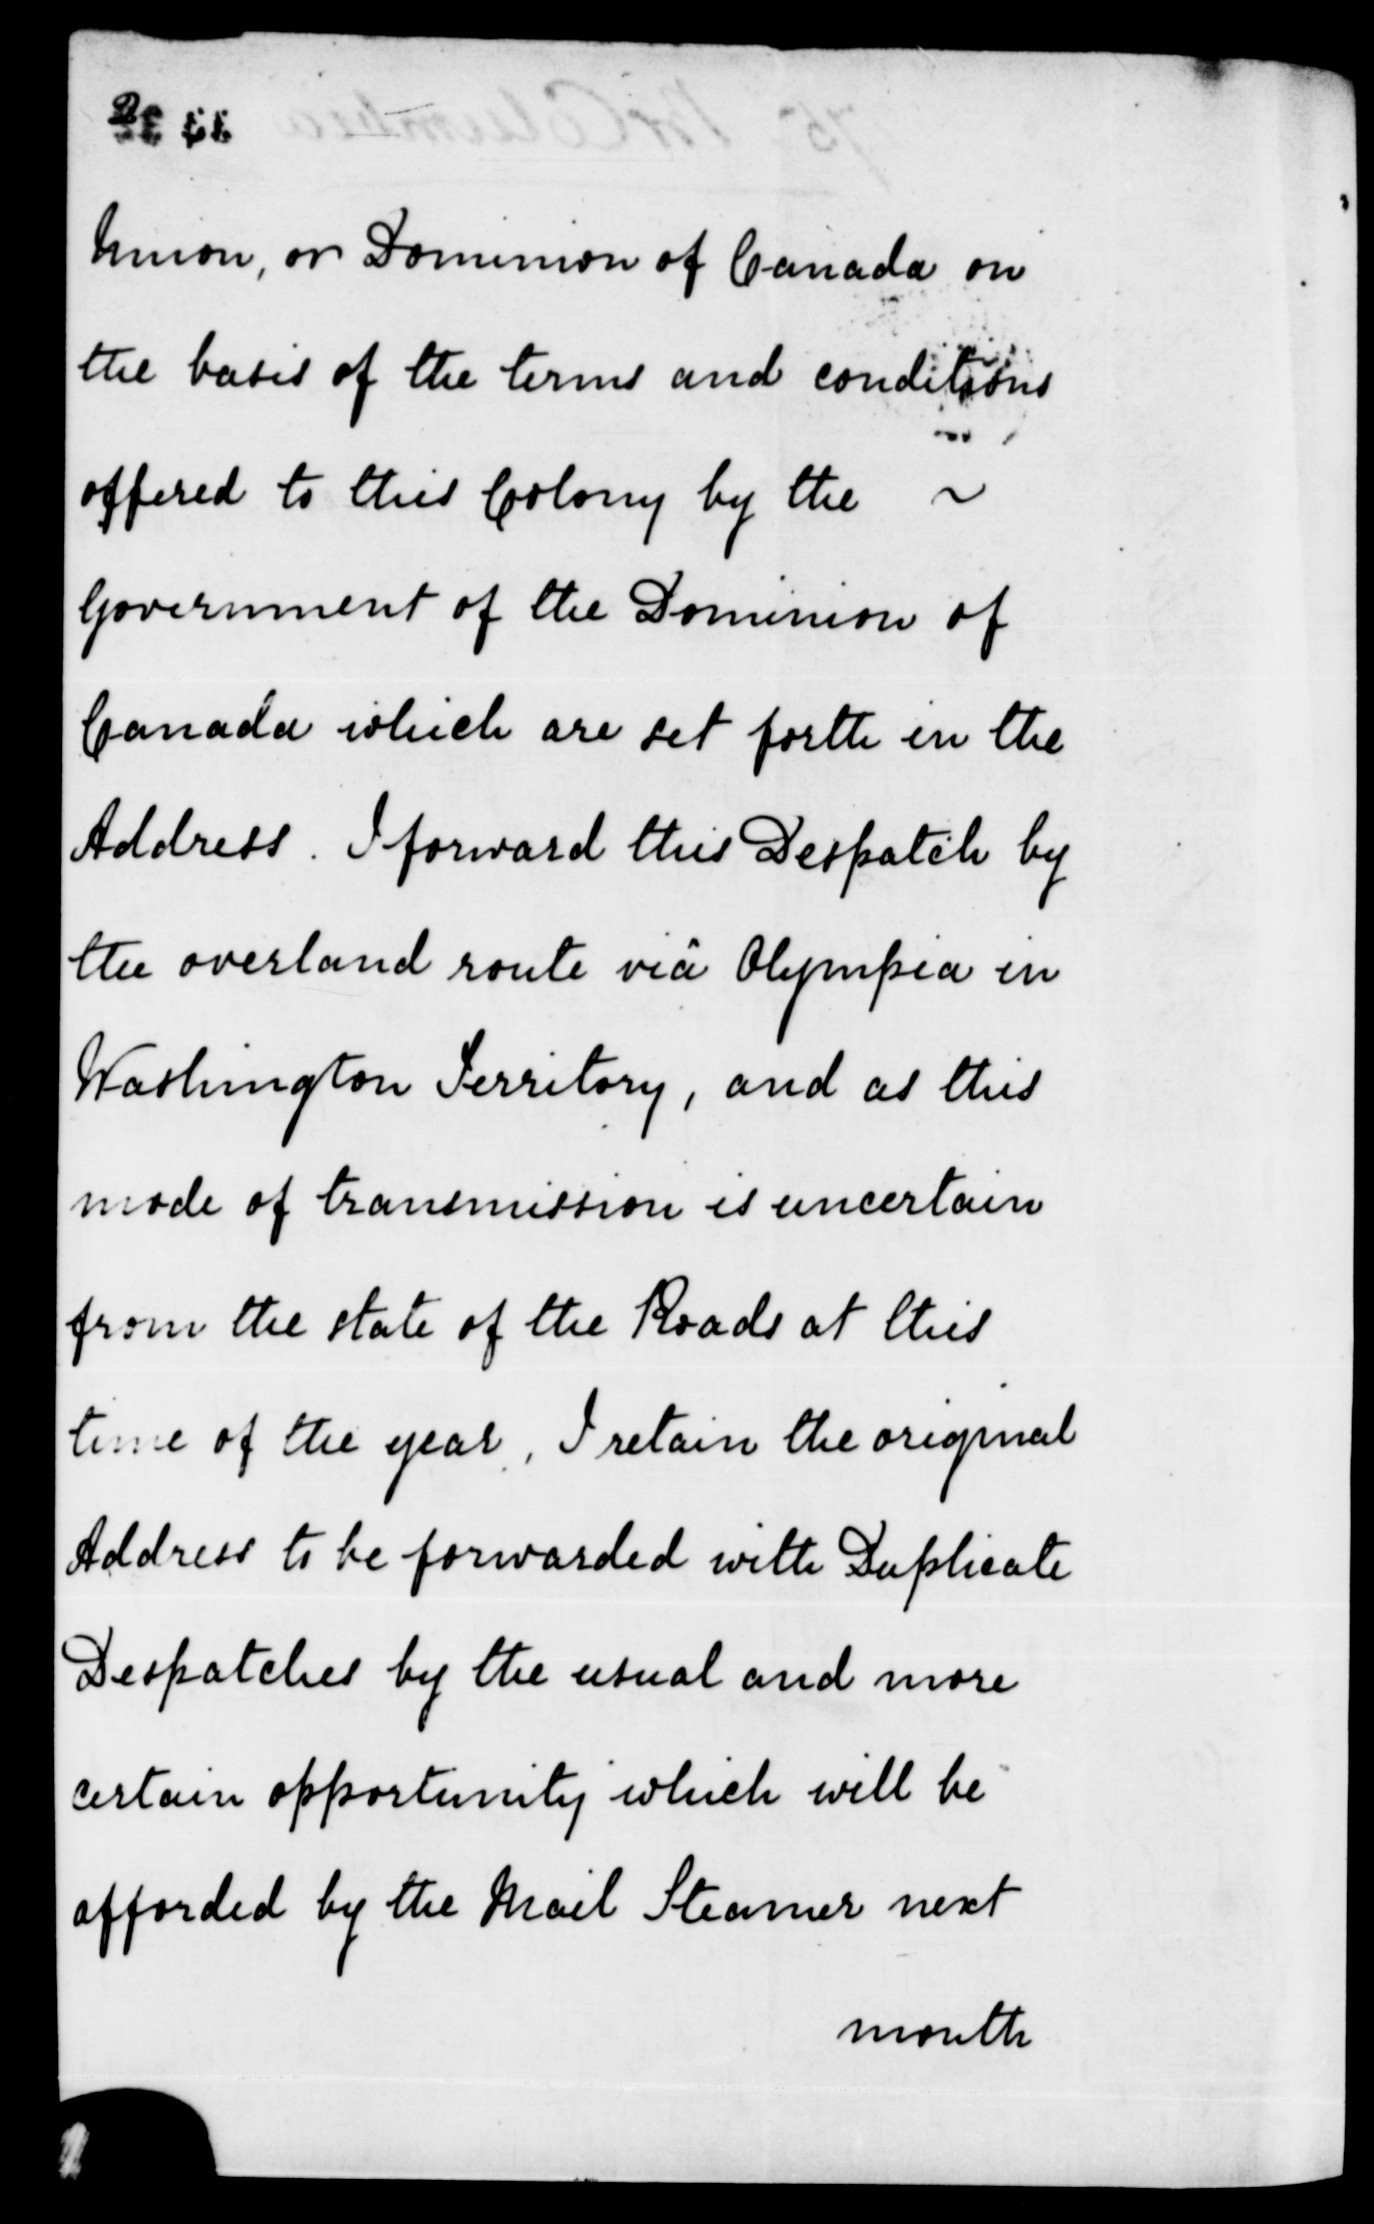 Union, or Dominion of Canada on
the basis of the terms and conditions
offered to this Colony by the ~
Government of the Dominion of
Canada which are set forth in the
Address. I forward this Despatch by
the overland route viâ Olympia in
Washington Territory, and as this
mode of transmission is uncertain
from the state of the Roads at this
time of the year, I retain the original
Address to be forwarded with Duplicate
Despatches by the usual and more
certain opportunity which will be
afforded by the Mail Steamer next
month